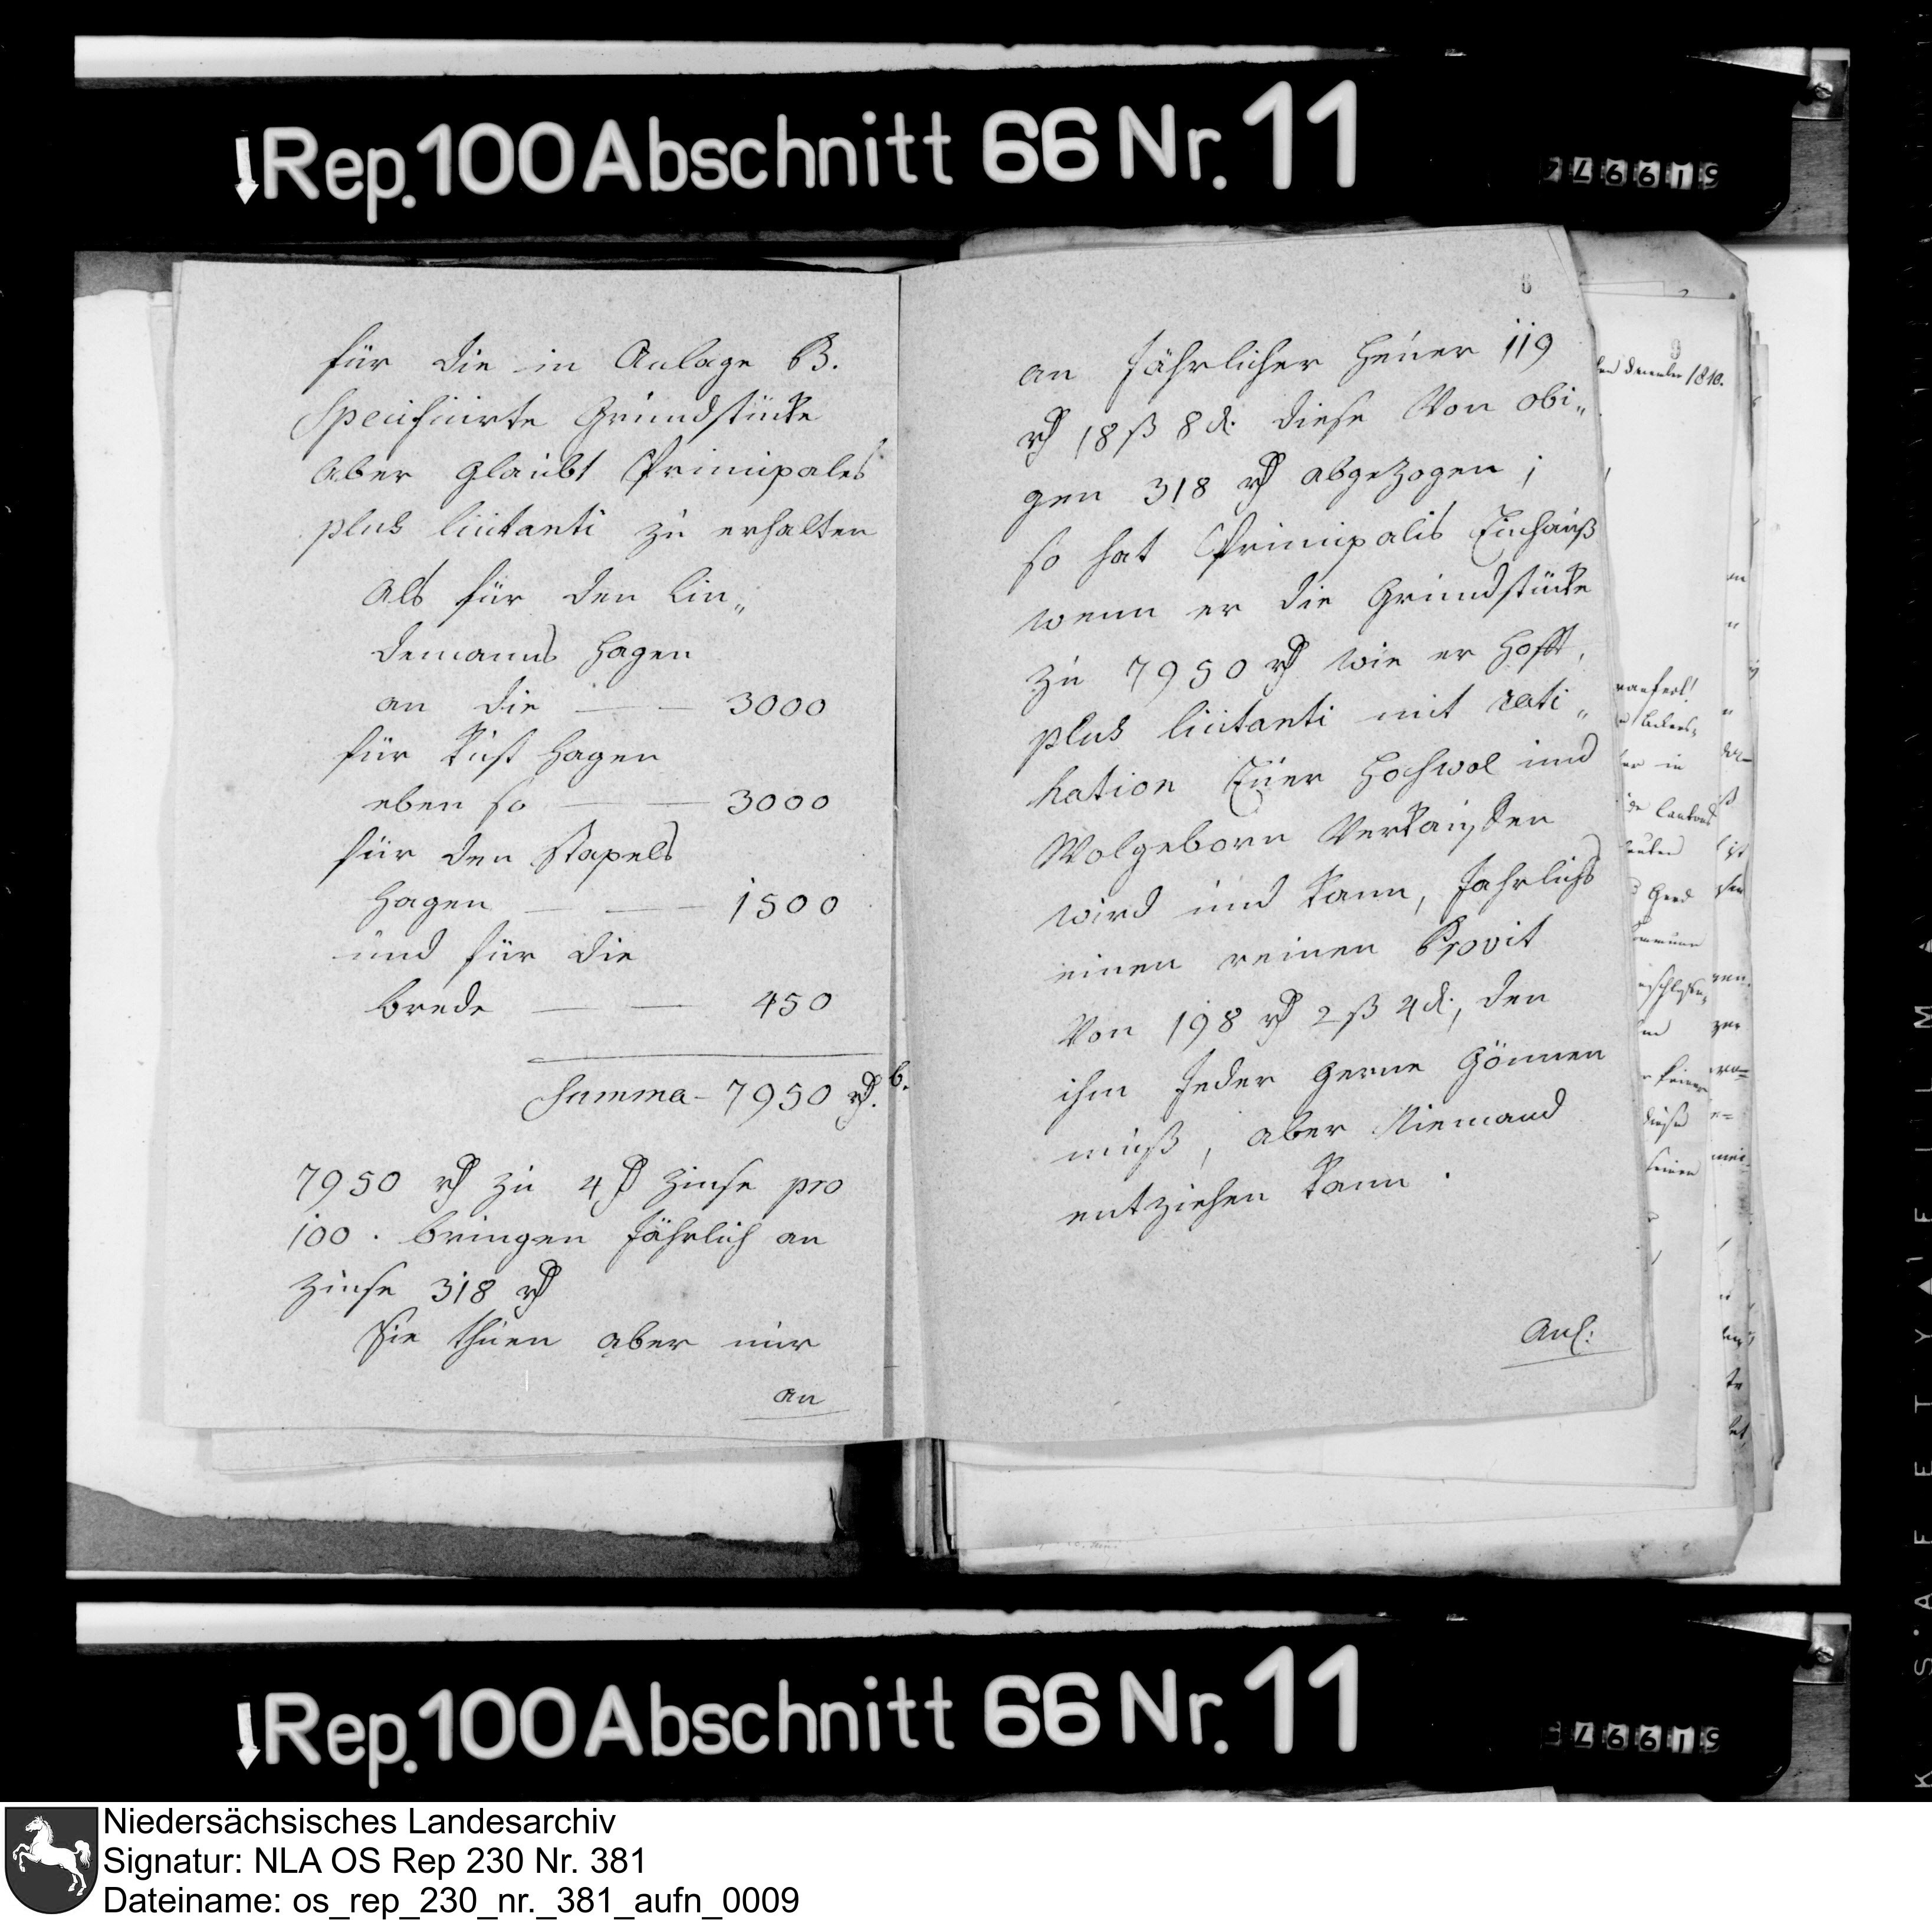 ↓Rep.100Abschnitt 66 Nr.11
für die in Anlage B.
Specificirte Grundstücke
Aber glaubt Principales
plus licitanti zu erhalten
Als für den Lin„
demanns Hagen
an die — — 3000
für Kust Hagen
eben so — — 3000
für den Stapels
Hagen — — 1500
und für die
brede — — 450
Summa - 7950 rƒ.
b.
7950 rƒ zu 4 ƒ Zinse pro
100. bringen jährlich an
Zinse 318 rƒ
Sie thuen aber nur
an
8
an Jährlicher Heuer 119
rƒ 18 ß 8 d. diese Von obi„
gen 318 rƒ abgezogen ;
so hat Principalis
wenn er die Grundstücke
zu 7950 rƒ wie er hofft,
plus licitanti mit rati„
hation Euer Hochwol und
Wolgeborn Verkaufen
wird und kann, Jahrlichs
einen reinen Provit
Von 198 rƒ 2 ß 4 d., den
ihm Jeder gerne Gönnen
muß, aber Niemand
entziehen kann.
Anl:
9
1810.
↓Rep.100Abschnitt 66 Nr.11
Niedersächsisches Landesarchiv
Signatur: NLA OS Rep 230 Nr. 381
Dateiname: os_rep_230_nr._381_aufn_0009